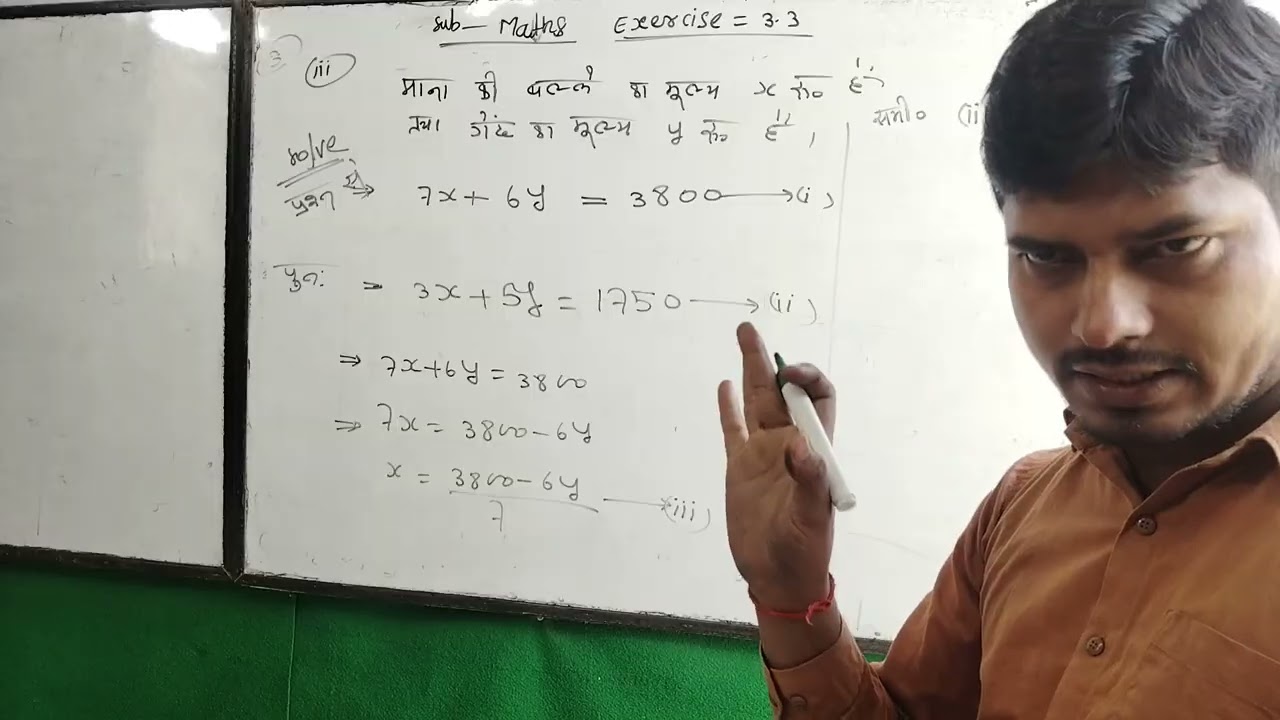 Sub— Maths Exercise = 3.3
(iii) माना की बल्ले का मूल्य x रू० है
तथा गेंद का मूल्य y रू० है,
solve
प्रश्न से → 7x + 6y = 3800 → (i)
पुन: = 3x + 5y = 1750 → (ii)
⇒ 7x + 6y = 3800
⇒ 7x = 3800 - 6y
x = 3800 - 6y / 7 → (iii)
समी० (ii